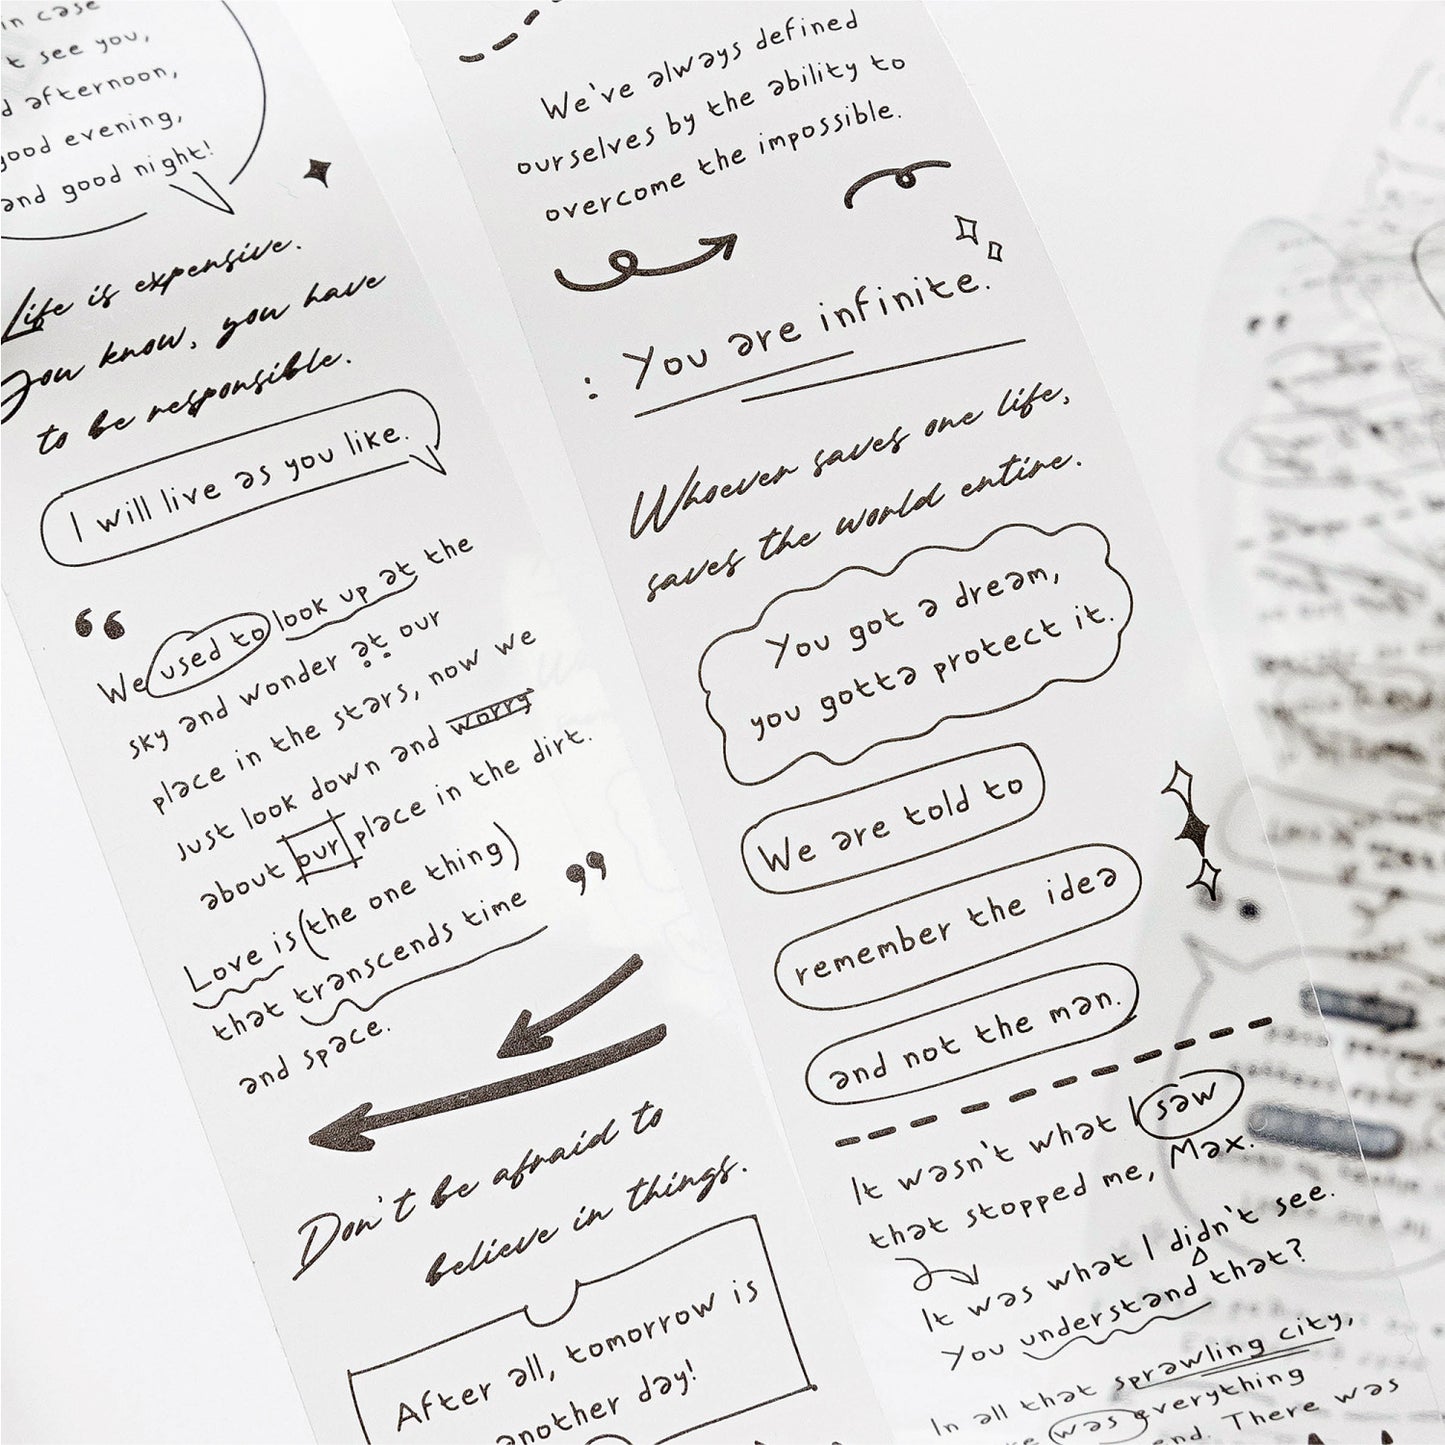 in case
t see you,
d afternoon,
good evening,
and good night!
Life is expensive.
You know, you have
to be responsible.
I will live as you like.
“
We used to look up at the
sky and wonder at our
place in the stars, now we
just look down and worry
about our place in the dirt.
”
Love is (the one thing)
that transcends time
and space.
Don't be afraid to
believe in things.
After all, tomorrow is
another day!
We've always defined
ourselves by the ability to
overcome the impossible.
: You are infinite.
Whoever saves one life,
saves the world entire.
You got a dream,
you gotta protect it.
We are told to
remember the idea
and not the man.
It wasn't what I saw
that stopped me, Max.
It was what I didn't see.
You understand that?
In all that sprawling city,
was everything
end. There was